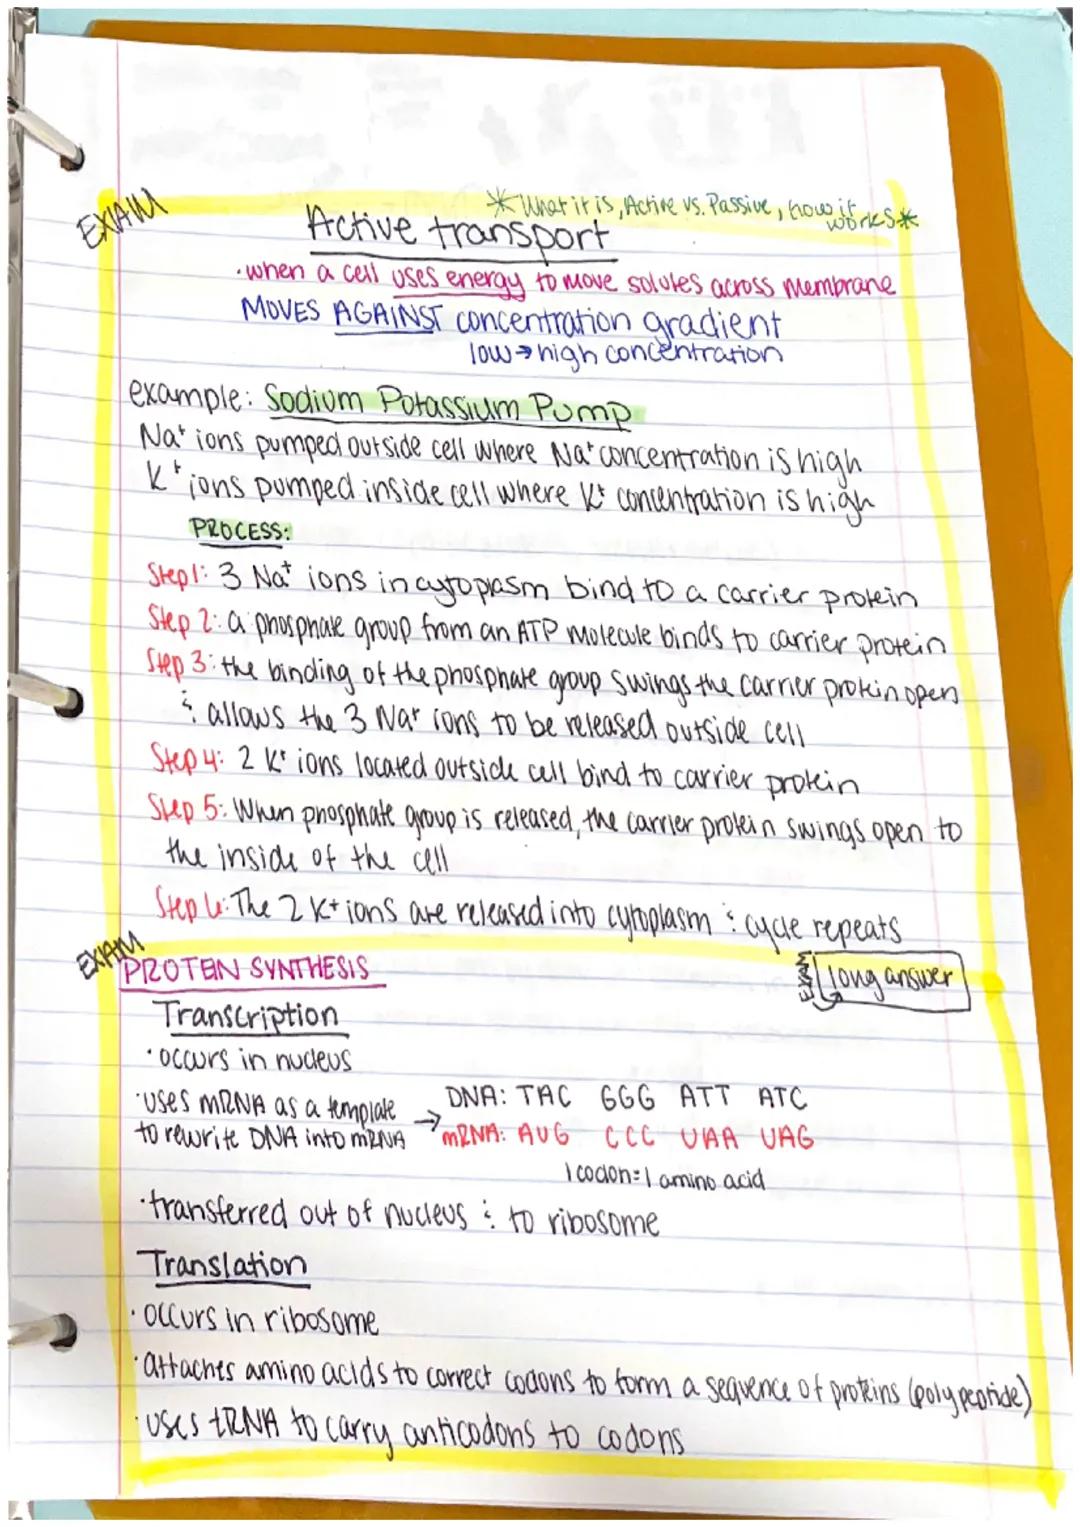 EXAM
*What it is, Active vs. Passive, how it works*
Active transport
·when a cell uses energy to move solutes across membrane
MOVES AGAINST concentration gradient
low→high concentration
example: Sodium Potassium Pump
Na+ ions pumped outside cell where Na+ concentration is high
K+ ions pumped inside cell where K+ concentration is high
PROCESS:
Step 1: 3 Na+ ions in cytoplasm bind to a carrier protein
Step 2: a phosphate group from an ATP molecule binds to carrier protein
Step 3: the binding of the phosphate group swings the carrier protein open
& allows the 3 Na+ ions to be released outside cell
Step 4: 2 K+ ions located outside cell bind to carrier protein
Step 5: When phosphate group is released, the carrier protein swings open to
the inside of the cell
Step 6: The 2 K+ ions are released into cytoplasm & cycle repeats
EXAM
PROTEIN SYNTHESIS
long answer
Transcription
·occurs in nucleus
·uses mRNA as a template → DNA: TAC GGG ATT ATC
to rewrite DNA into mRNA mRNA: AUG CCC UAA UAG
1 codon=1 amino acid
·transferred out of nucleus & to ribosome
Translation
·occurs in ribosome
·attaches amino acids to correct codons to form a sequence of proteins (polypeptide)
·uses tRNA to carry anticodons to codons